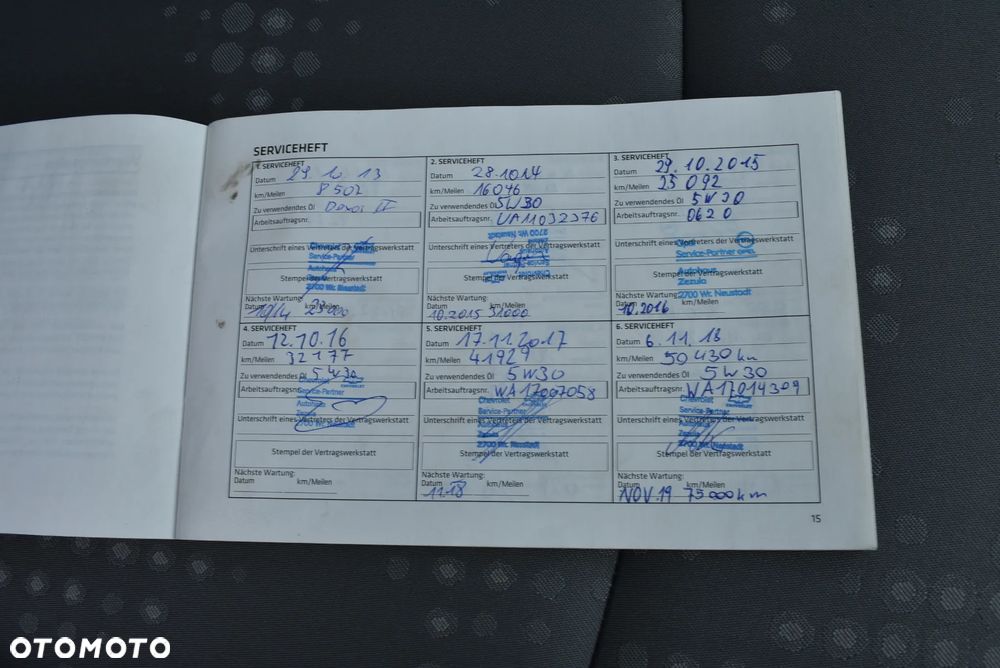 SERVICEHEFT
1. SERVICEHEFT
Datum 29 10 13
km/Meilen 8502
Zu verwendetes Öl Dexos II
Arbeitsauftragsnr.
Unterschrift eines Vertreters der Vertragswerkstatt
Chevrolet
Service-Partner
Autohaus
2700 Wr. Neustadt
Stempel der Vertragswerkstatt
Nächste Wartung:
Datum km/Meilen
10/14 23000
2. SERVICEHEFT
Datum 28.10 14
km/Meilen 16046
Zu verwendetes Öl 5W30
Arbeitsauftragsnr. WA11032376
2700 Wr. Neustadt
Unterschrift eines Vertreters der Vertragswerkstatt
Stempel der Vertragswerkstatt
Nächste Wartung:
Datum km/Meilen
10.2015 31000
3. SERVICEHEFT
Datum 29.10.2015
km/Meilen 25 092
Zu verwendetes Öl 5W30
Arbeitsauftragsnr. 0620
Unterschrift eines Vertreters der Vertragswerkstatt
Service-Partner OPEL
Autohaus
Zezula
2700 Wr. Neustadt
Stempel der Vertragswerkstatt
Nächste Wartung:
Datum km/Meilen
10.2016
4. SERVICEHEFT
Datum 12.10.16
km/Meilen 32177
Zu verwendetes Öl 5W30
Arbeitsauftragsnr.
Chevrolet
Service-Partner
Autohaus
Zezula
2700 Wr. Neustadt
Unterschrift eines Vertreters der Vertragswerkstatt
Stempel der Vertragswerkstatt
Nächste Wartung:
Datum km/Meilen
5. SERVICEHEFT
Datum 17.11.2017
km/Meilen 41929
Zu verwendetes Öl 5W30
Arbeitsauftragsnr. WA17007058
Chevrolet
Service-Partner
Autohaus
Zezula
2700 Wr. Neustadt
Unterschrift eines Vertreters der Vertragswerkstatt
Stempel der Vertragswerkstatt
Nächste Wartung:
Datum km/Meilen
11.18
6. SERVICEHEFT
Datum 6.11.18
km/Meilen 50430 km
Zu verwendetes Öl 5W30
Arbeitsauftragsnr. WA17014309
Chevrolet
Service-Partner
Autohaus
Zezula
2700 Wr. Neustadt
Unterschrift eines Vertreters der Vertragswerkstatt
Stempel der Vertragswerkstatt
Nächste Wartung:
Datum km/Meilen
NOV.19 75000km
15
OTOMOTO